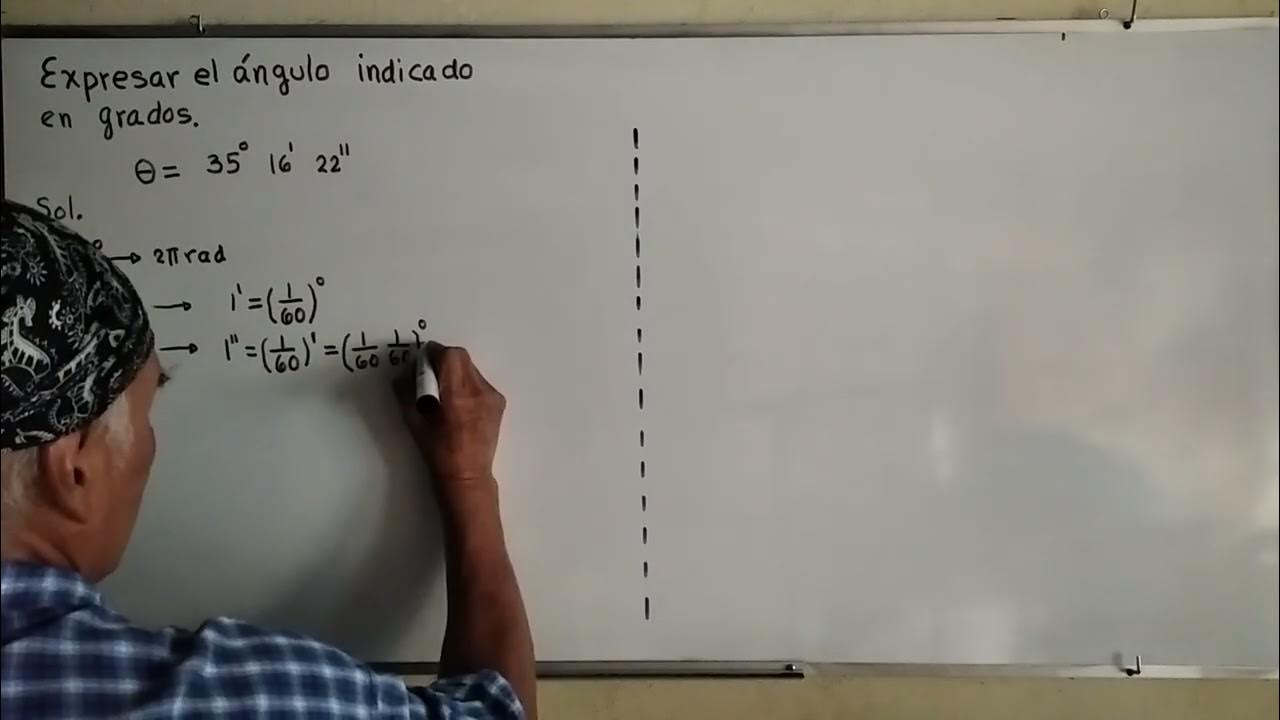 Expresar el ángulo indicado
en grados.
θ = 35° 16' 22''
Sol.
° → 2π rad
→ 1' = (1/60)°
→ 1'' = (1/60)' = (1/60 1/60)°